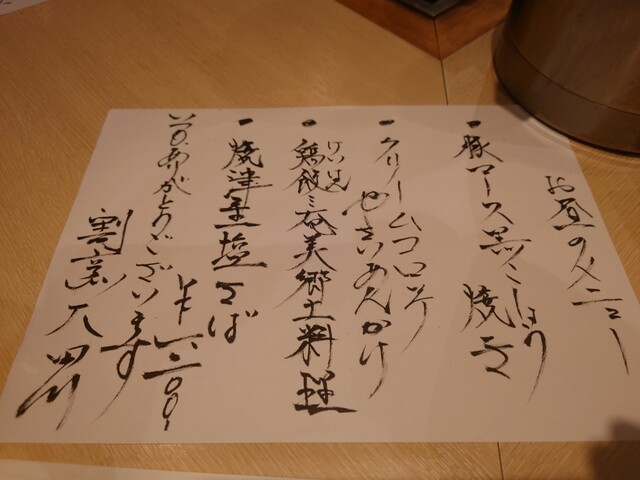 お昼のメニュー
・豚ロース黒こしょう焼き
・クリームコロッケ
やさいあんかけ
・鶏飯ミ奄美郷土料理
けいはん
・焼津産塩さば
¥一二〇〇,
いつもありがとうございます
割烹 八